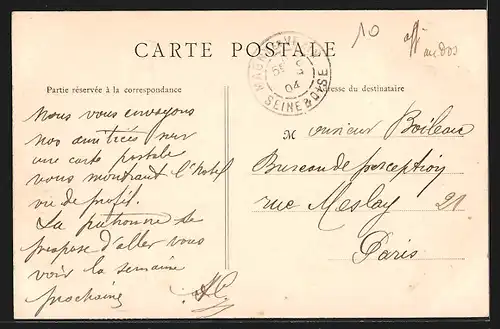 10
aff
au dos
CARTE POSTALE
MAGNY-EN-VEXIN
04
SEINE & OISE
Partie réservée à la correspondance
Adresse du destinataire
Nous vous envoyons
nos amitiés sur
une carte postale
vous montrant l'hotel
vu de profil.
La patronne se
propose d'aller vous
voir la semaine
prochaine
M onsieur Boileau
Bureau de perception
rue Meslay 21
Paris